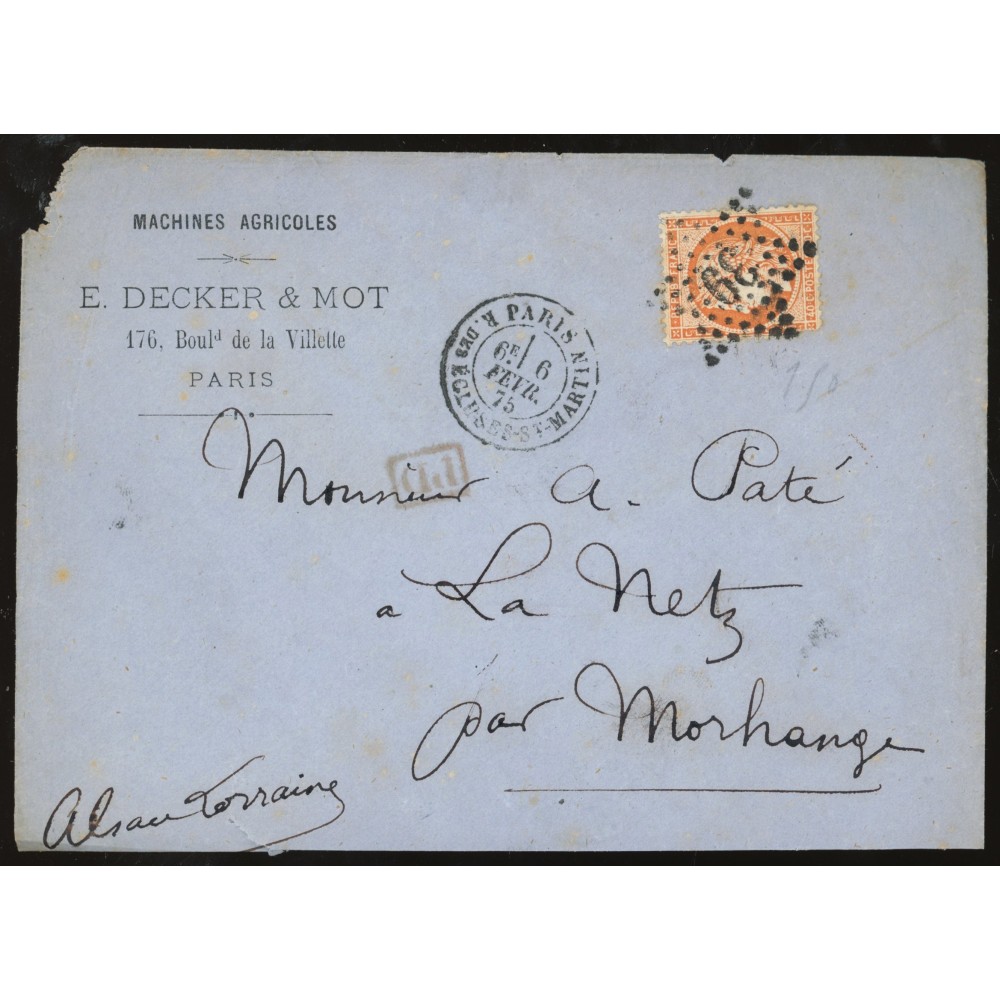 MACHINES AGRICOLES
E. DECKER & MOT
176, Boulᵈ de la Villette
PARIS
PARIS
R. DES ÉCLUSES-ST-MARTIN
6E/ 6
FÉVR.
75
39
40 C. POSTES
150
P.D.
Monsieur A. Paté
a La Netz
par Morhange
Alsace Lorraine